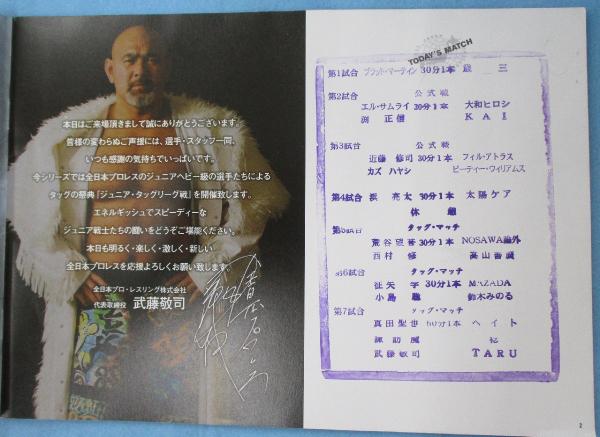 本日はご来場頂きまして誠にありがとうございます。
皆様の変わらぬご声援には、選手・スタッフ一同、
いつも感謝の気持ちでいっぱいです。
今シリーズでは全日本プロレスのジュニアヘビー級の選手たちによる
タッグの祭典「ジュニア・タッグリーグ戦」を開催致します。
エネルギッシュでスピーディーな
ジュニア戦士たちの闘いをどうぞご堪能ください。
本日も明るく・楽しく・激しく・新しい
全日本プロレスを応援よろしくお願い致します。
全日本プロ・レスリング株式会社
代表取締役 武藤敬司
TODAY'S MATCH
第1試合 ブラット・マーティン 30分1本 嵐 三
第2試合 公式戦
エル・サムライ 30分1本 大和ヒロシ
渕 正信 KAI
第3試合 公式戦
近藤 修司 30分1本 フィル・アトラス
カズ ハヤシ ピーティー・ウィリアムス
第4試合 浜 亮太 30分1本 太陽ケア
休憩
第5試合 タッグ・マッチ
荒谷望誉 30分1本 NOSAWA論外
西村 修 高山善廣
第6試合 タッグ・マッチ
征矢 学 30分1本 MAZADA
小島 聡 鈴木みのる
第7試合 タッグ・マッチ
真田聖也 60分1本 ヘイト
諏訪魔
武藤敬司 TARU
2